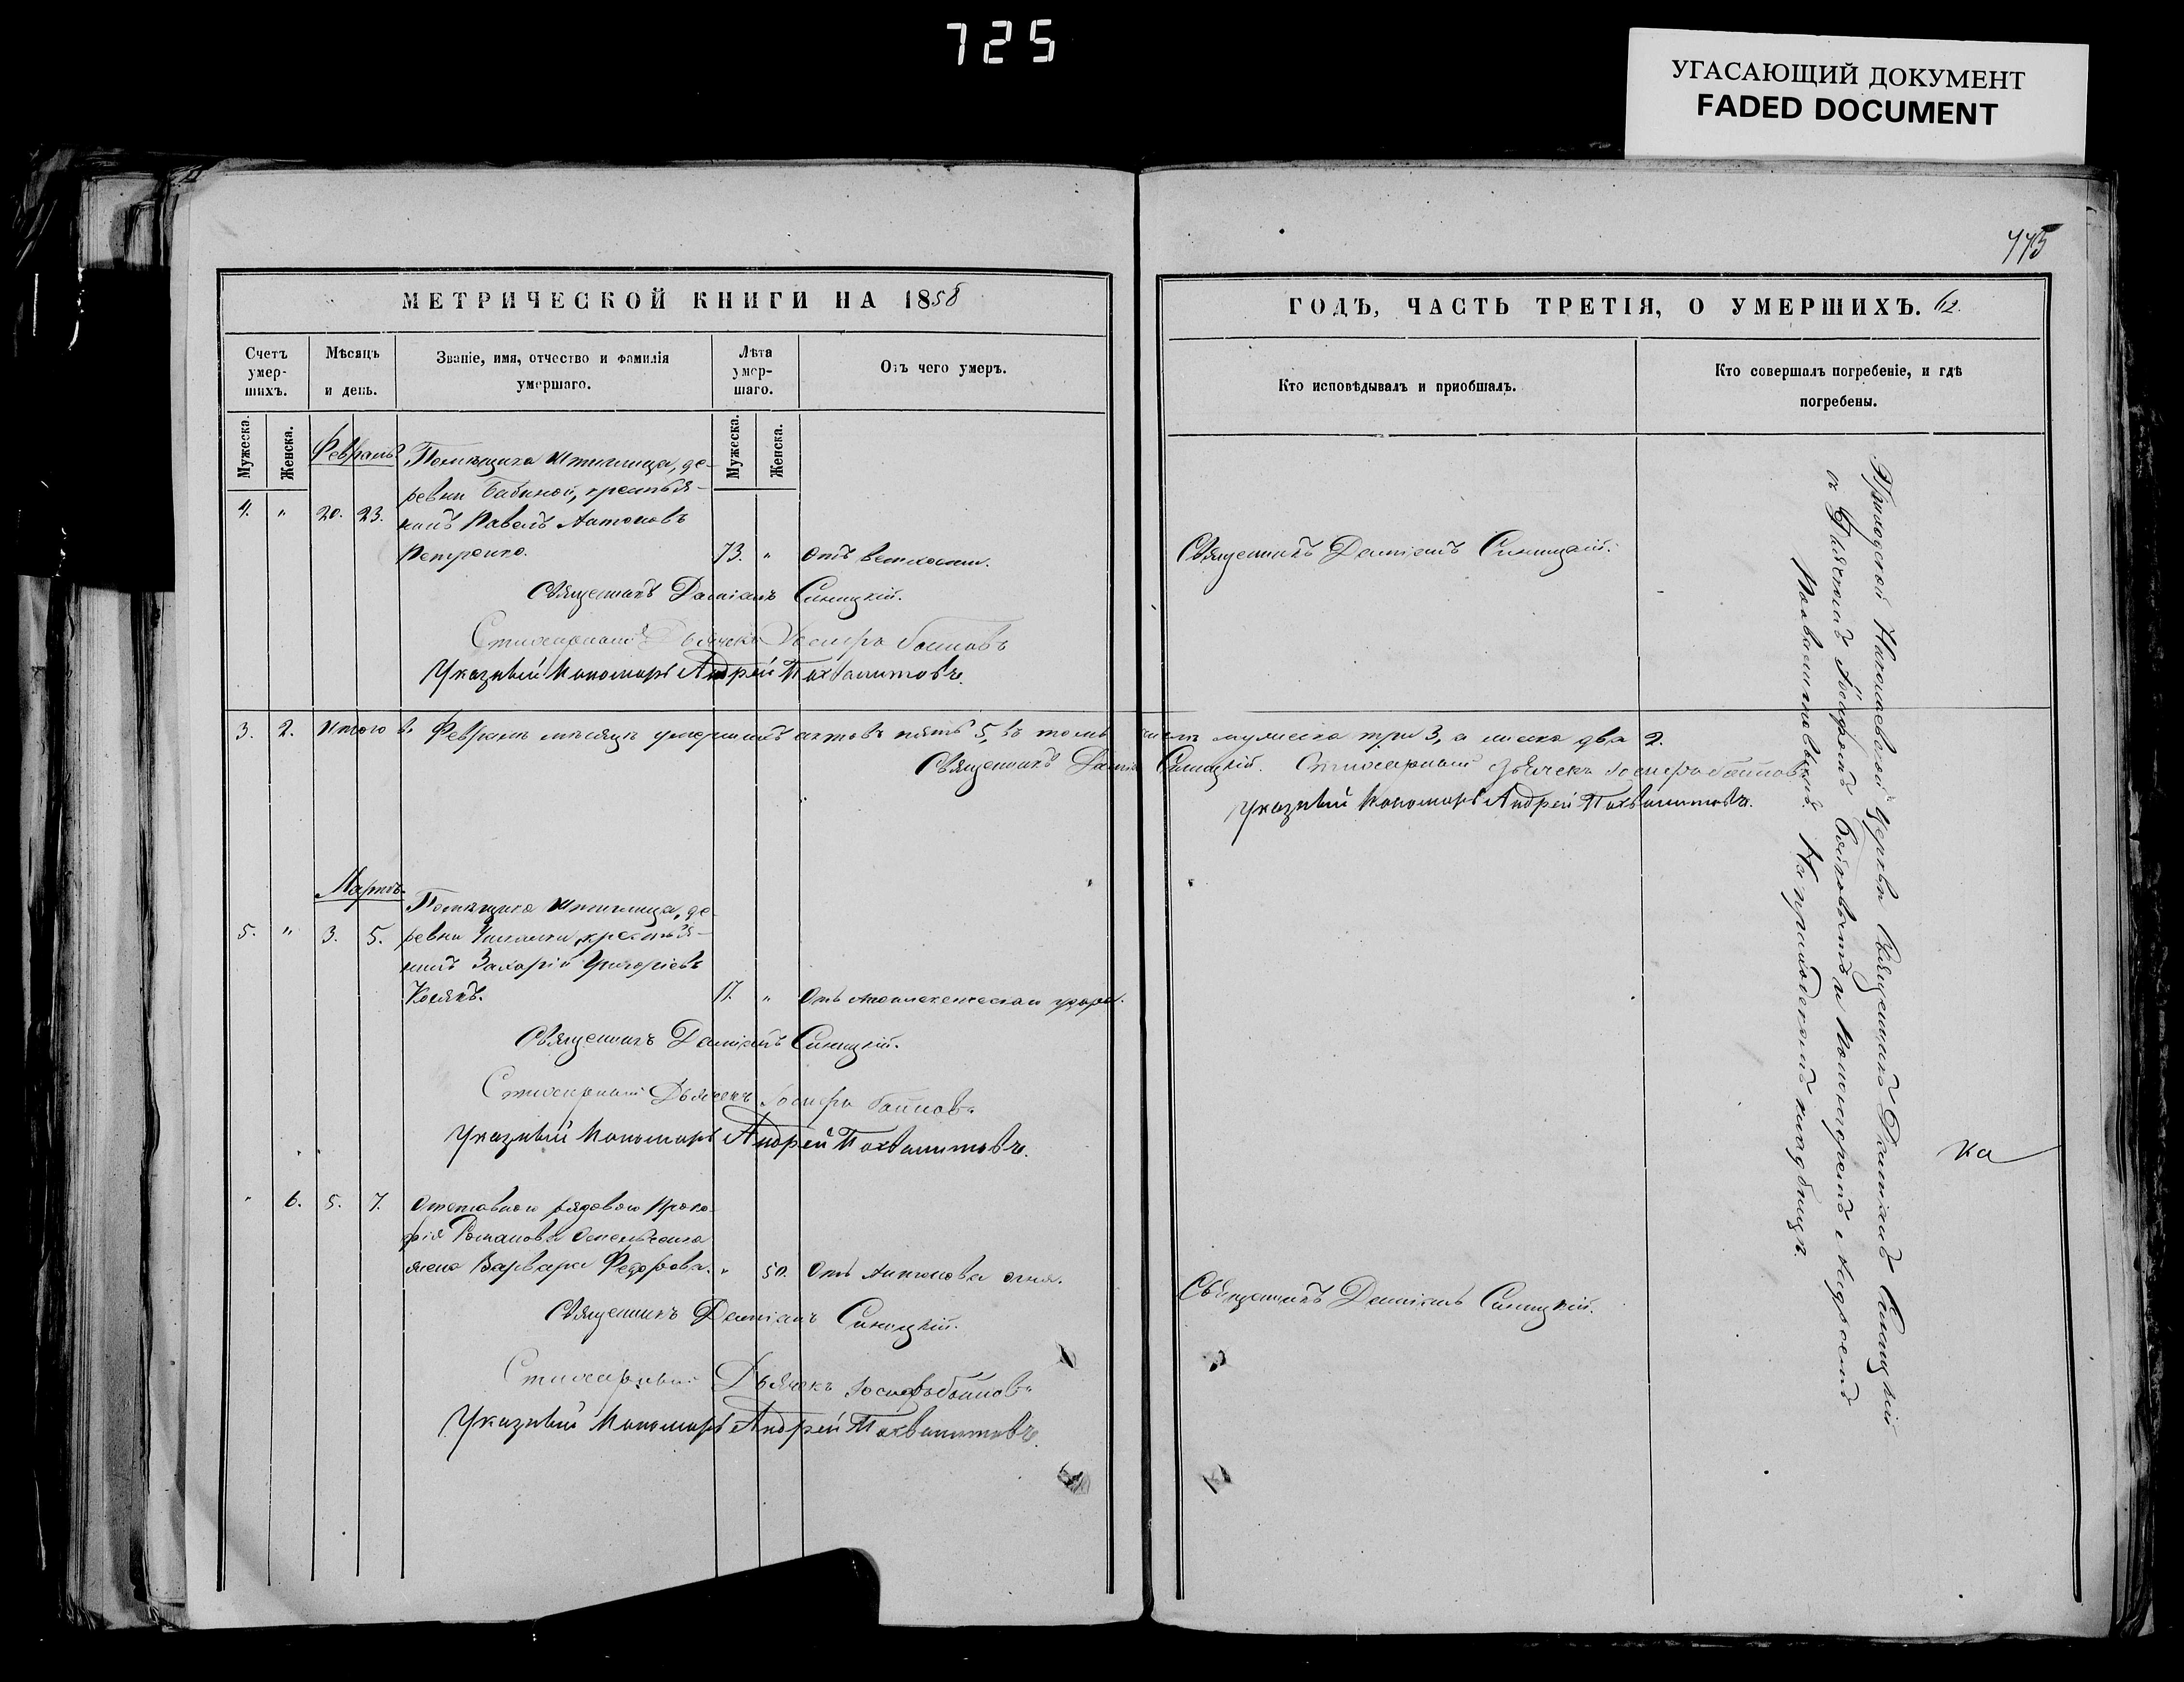 725
УГАСАЮЩИЙ ДОКУМЕНТ
FADED DOCUMENT
775
МЕТРИЧЕСКОЙ КНИГИ НА 1858
Счетъ умер-шихъ.
Мѣсяцъ и день.
Званіе, имя, отчество и фамилія умершаго.
Лѣта умер-шаго.
Отъ чего умеръ.
Мужеска.
Женска.
Мужеска.
Женска.
Февраль
Помѣщика де-
4. " 20. 23. ревни Бабиной, крестья-
нинъ Павелъ Антоновъ
Петренко. 73. " Отъ ветхости.
Священникъ Даміанъ Синицкій.
Стихарный Дьячекъ Іосифъ
Указный Пономарь Андрей
3. 2. Итого въ Февралѣ мѣсяцѣ умершихъ актовъ пять 5, въ томъ числѣ мужеска три 3, а женска два 2.
Священникъ Даміанъ Синицкій. Стихарный Дьячекъ Іосифъ
Указный Пономарь Андрей
Мартъ.
Помѣщика де-
5. " 3. 5. ревни крестья-
нинъ Захарій Григорьевъ
17. " Отъ апоплексическаго удара.
Священникъ Даміанъ Синицкій.
Стихарный Дьячекъ Іосифъ
Указный Пономарь Андрей
" 6. 5. 7. Отставного рядового Проко-
фія Романова
жена Варвара Федорова. " 50. Отъ Антонова огня.
Священникъ Даміанъ Синицкій.
Стихарный Дьячекъ Іосифъ
Указный Пономарь Андрей
ГОДЪ, ЧАСТЬ ТРЕТІЯ, О УМЕРШИХЪ. 62.
Кто исповѣдывалъ и приобщалъ.
Кто совершалъ погребеніе, и гдѣ погребены.
Священникъ Даміанъ Синицкій.
Священникъ Даміанъ Синицкій.
Приходской Николаевской церкви Священникъ Даміанъ Синицкій
съ Дьячкомъ Іосифомъ и Пономаремъ Андреемъ
На приходскомъ кладбищѣ.
ка